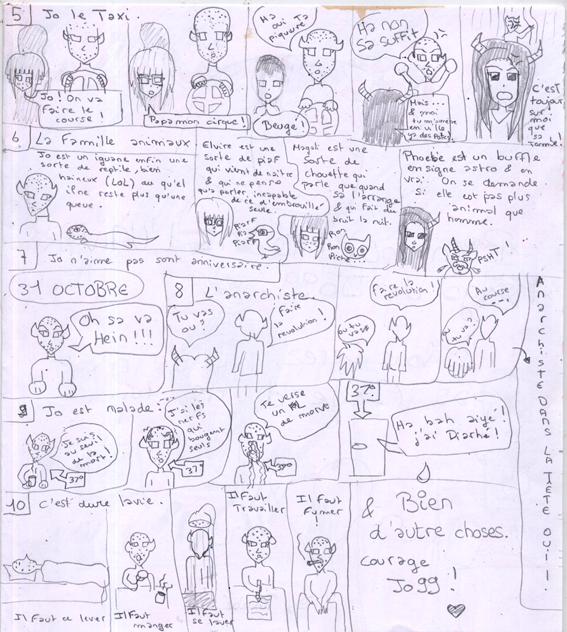 5 Jo le Taxi.
Jo! On va
faire le
course!
Papamon cirque!
Ha
oui ta
piqueuse
Beuge!
Ha non
sa suffit
Mais...
C'est
toujours
sur
moi
que
sa
tombe!
6 La Famille animaux
Jo est un iguane enfin une
sorte de reptile, bien
haineux (LOL) au quel
il ne reste plus qu'une
queue.
Elvire est une
sorte de piaf
qui vient de naitre
& qui ne pense
qu'a parler incapable
de ce d'embrouiller
seule.
Piaf
Piaf
Piaf
Magot est une
sorte de
chouette qui
parle que quand
sa l'arrange
& qui fait du
bruit la nuit.
Ron
Ron
Piche...
Phoebe est un buffle
en signe astro & en
vrai. On se demande
si elle est pas plus
animal que
homme.
PSHT!
7 Jo n'aime pas sont anniversaire.
31 OCTOBRE
Oh sa va
Hein!!!
8 L'anarchiste.
Tu vas
ou?
Faire
la
revolution!
ou tu
vas?
Faire la
revolution!
ou
tu va?
Au
course
...
ANARCHISTE DANS LA TETE OUI!
9 Jo est malade.
Je suis
au seuil
de la
mort!
37°
J'ai les
nerfs
qui
bougent
seuls
37°
Je verse
un
de morve
37°
37°
Ha, bah aiyé!
j'ai Diarhé!
10 C'est dure lavie.
Il Faut ce lever
Il Faut
manger
Il Faut
se laver
Il Faut
Travailler
Il Faut
Fumer
!
& Bien
d'autre choses.
Courage
Jogg!